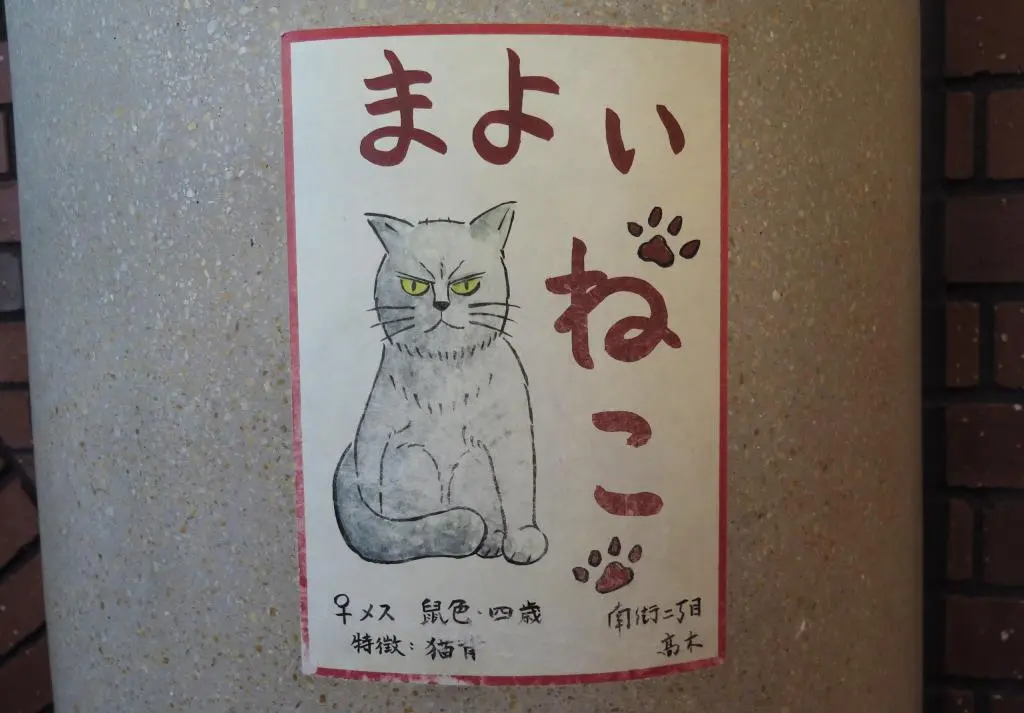 まよい
ねこ
♀メス 鼠色・四歳
特徴:猫背
南街二丁目
高木